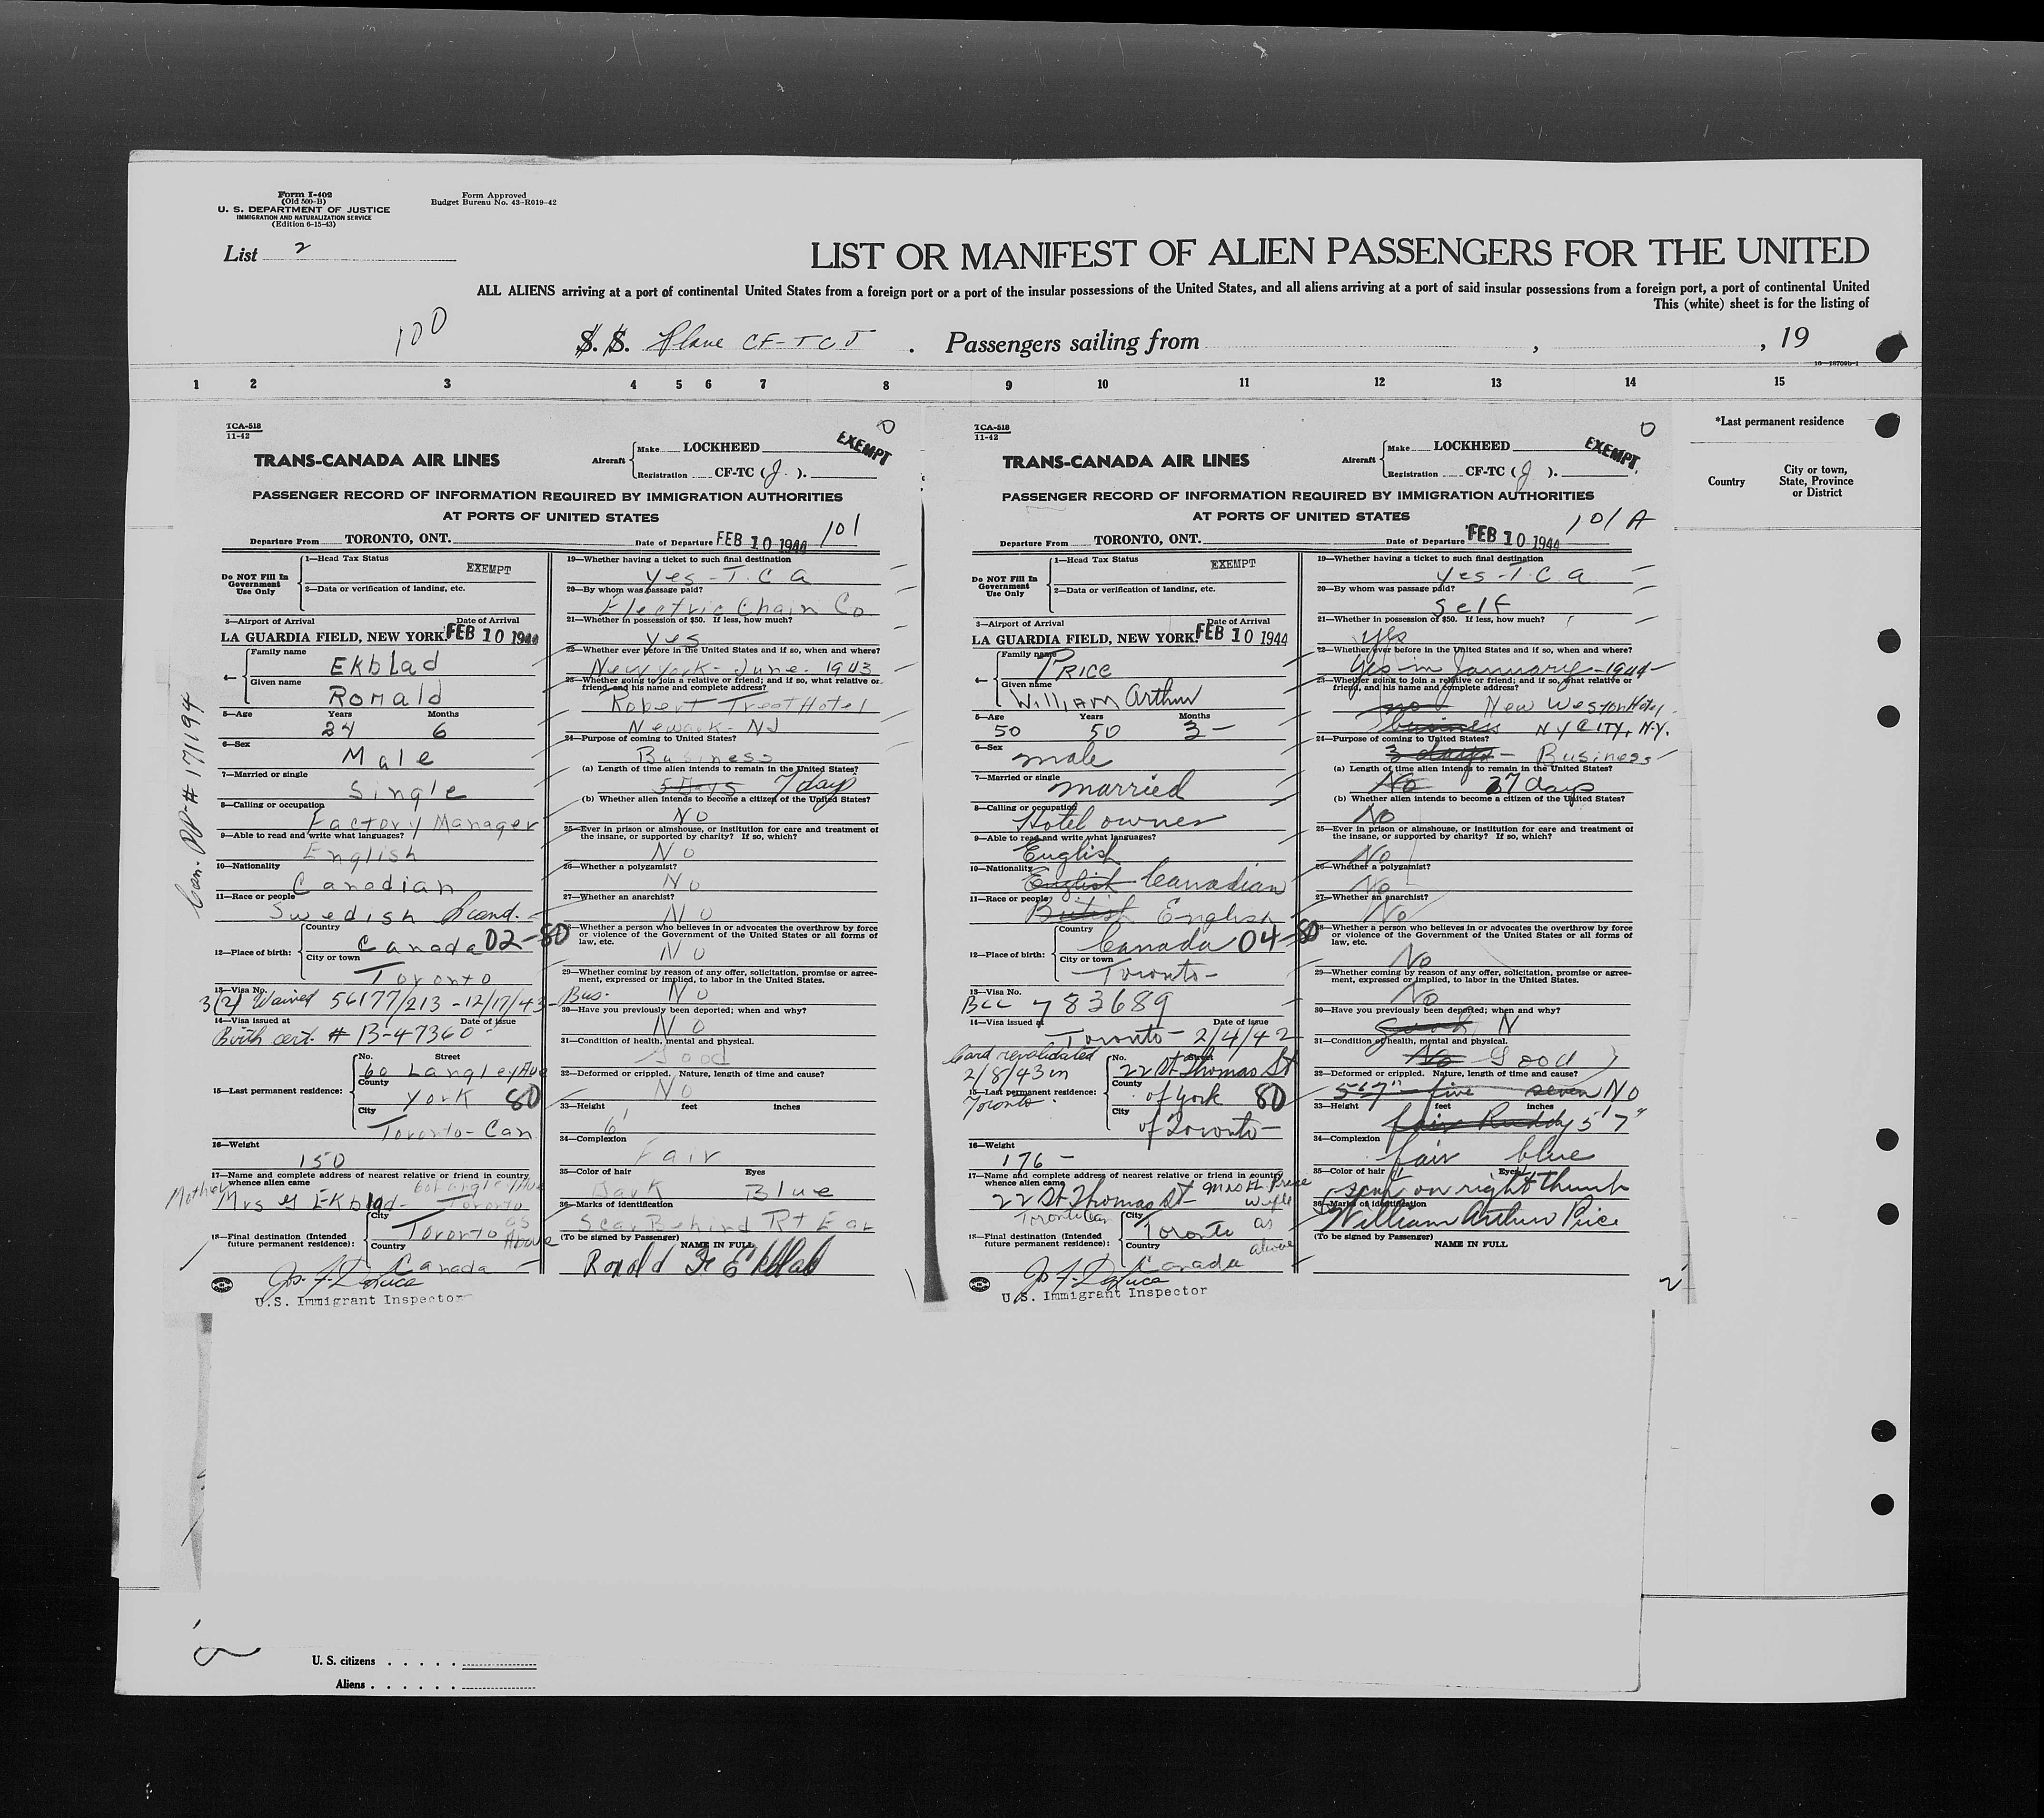 Form I-402
(Old 500-B)
U. S. DEPARTMENT OF JUSTICE
IMMIGRATION AND NATURALIZATION SERVICE
(Edition 6-15-43)
Form Approved
Budget Bureau No. 43-R019-42
List 2
LIST OR MANIFEST OF ALIEN PASSENGERS FOR THE UNITED
ALL ALIENS arriving at a port of continental United States from a foreign port or a port of the insular possessions of the United States, and all aliens arriving at a port of said insular possessions from a foreign port, a port of continental United
This (white) sheet is for the listing of
100
S. S. Plane CF-TCJ . Passengers sailing from , , 19
1 2 3 4 5 6 7 8 9 10 11 12 13 14 15
*Last permanent residence
Country
City or town, State, Province or District
TCA-518
11-42
TRANS-CANADA AIR LINES
Aircraft Make LOCKHEED
Registration CF-TC (J).
0
EXEMPT
PASSENGER RECORD OF INFORMATION REQUIRED BY IMMIGRATION AUTHORITIES
AT PORTS OF UNITED STATES
101
Departure From TORONTO, ONT. Date of Departure FEB 10 1944
Do NOT Fill In Government Use Only
1—Head Tax Status EXEMPT
2—Data or verification of landing, etc.
3—Airport of Arrival Date of Arrival
LA GUARDIA FIELD, NEW YORK. FEB 10 1944
4— Family name Ekblad
Given name Ronald
5—Age Years 24 Months 6
6—Sex Male
7—Married or single Single
8—Calling or occupation Factory Manager
9—Able to read and write what languages? English
10—Nationality Canadian
11—Race or people Swedish Scand.
12—Place of birth: Country Canada 02-80
City or town Toronto
13—Visa No. 3(2) Waived 56177/213 - 12/17/43 - Bus.
14—Visa issued at Date of issue
Birth cert. # B-47360
15—Last permanent residence: No. Street 60 Langley Ave
County York 80
City Toronto - Can
16—Weight 150
17—Name and complete address of nearest relative or friend in country whence alien came
Mother Mrs G Ekblad - 60 Langley Ave Toronto
18—Final destination (Intended future permanent residence): City Toronto as Above
Country Canada
Can. PP # 171194
U.S. Immigrant Inspector
19—Whether having a ticket to such final destination
Yes - T.C A
20—By whom was passage paid?
Electric Chain Co
21—Whether in possession of $50. If less, how much?
Yes
22—Whether ever before in the United States and if so, when and where?
New York - June - 1943
23—Whether going to join a relative or friend; and if so, what relative or friend, and his name and complete address?
Robert Treat Hotel
Newark - NJ
24—Purpose of coming to United States?
Business
(a) Length of time alien intends to remain in the United States?
5 Days 7 days
(b) Whether alien intends to become a citizen of the United States?
No
25—Ever in prison or almshouse, or institution for care and treatment of the insane, or supported by charity? If so, which?
No
26—Whether a polygamist?
No
27—Whether an anarchist?
No
28—Whether a person who believes in or advocates the overthrow by force or violence of the Government of the United States or all forms of law, etc.
No
29—Whether coming by reason of any offer, solicitation, promise or agreement, expressed or implied, to labor in the United States.
No
30—Have you previously been deported; when and why?
No
31—Condition of health, mental and physical.
Good
32—Deformed or crippled. Nature, length of time and cause?
No
33—Height feet inches
6'
34—Complexion
Fair
35—Color of hair Eyes
Dark Blue
36—Marks of identification
Scar Behind Rt Ear
(To be signed by Passenger) NAME IN FULL
Ronald G Ekblad
TCA-518
11-42
TRANS-CANADA AIR LINES
Aircraft Make LOCKHEED
Registration CF-TC (J).
0
EXEMPT
PASSENGER RECORD OF INFORMATION REQUIRED BY IMMIGRATION AUTHORITIES
AT PORTS OF UNITED STATES
101A
Departure From TORONTO, ONT. Date of Departure FEB 10 1944
Do NOT Fill In Government Use Only
1—Head Tax Status EXEMPT
2—Data or verification of landing, etc.
3—Airport of Arrival Date of Arrival
LA GUARDIA FIELD, NEW YORK. FEB 10 1944
4— Family name Price
Given name William Arthur
5—Age 50 Years 50 Months 3 -
6—Sex male
7—Married or single married
8—Calling or occupation Hotel owner
9—Able to read and write what languages? English
10—Nationality English Canadian
11—Race or people British English
12—Place of birth: Country Canada 04-80
City or town Toronto -
13—Visa No. BCC 783689
14—Visa issued at Toronto - Date of issue 2/4/42
Card revalidated 2/8/43 in Toronto
15—Last permanent residence: No. Street 22 St Thomas St
County of York 80
City of Toronto -
16—Weight 176 -
17—Name and complete address of nearest relative or friend in country whence alien came
22 St Thomas St - Mrs Price wife
Toronto Can
18—Final destination (Intended future permanent residence): City Toronto as above
Country Canada
U.S. Immigrant Inspector
19—Whether having a ticket to such final destination
Yes - T.C A
20—By whom was passage paid?
Self
21—Whether in possession of $50. If less, how much?
Yes
22—Whether ever before in the United States and if so, when and where?
Yes in January - 1944 -
23—Whether going to join a relative or friend; and if so, what relative or friend, and his name and complete address?
no New Weston Hotel
business N Y CITY, N.Y.
24—Purpose of coming to United States?
3 days - Business
(a) Length of time alien intends to remain in the United States?
No 7 days
(b) Whether alien intends to become a citizen of the United States?
No
25—Ever in prison or almshouse, or institution for care and treatment of the insane, or supported by charity? If so, which?
No
26—Whether a polygamist?
No
27—Whether an anarchist?
No
28—Whether a person who believes in or advocates the overthrow by force or violence of the Government of the United States or all forms of law, etc.
No
29—Whether coming by reason of any offer, solicitation, promise or agreement, expressed or implied, to labor in the United States.
No
30—Have you previously been deported; when and why?
Good N
31—Condition of health, mental and physical.
No Good
32—Deformed or crippled. Nature, length of time and cause?
5'7" five seven No
33—Height feet inches
fair Ruddy 5'7"
34—Complexion
fair blue
35—Color of hair Eyes
scar on right thumb
36—Marks of identification
William Arthur Price
(To be signed by Passenger) NAME IN FULL
2
U. S. citizens . . . . .
Aliens . . . . . .